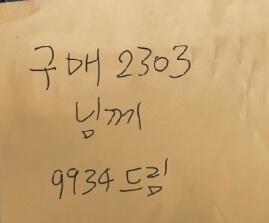 구매 2303
님께
9934 드림